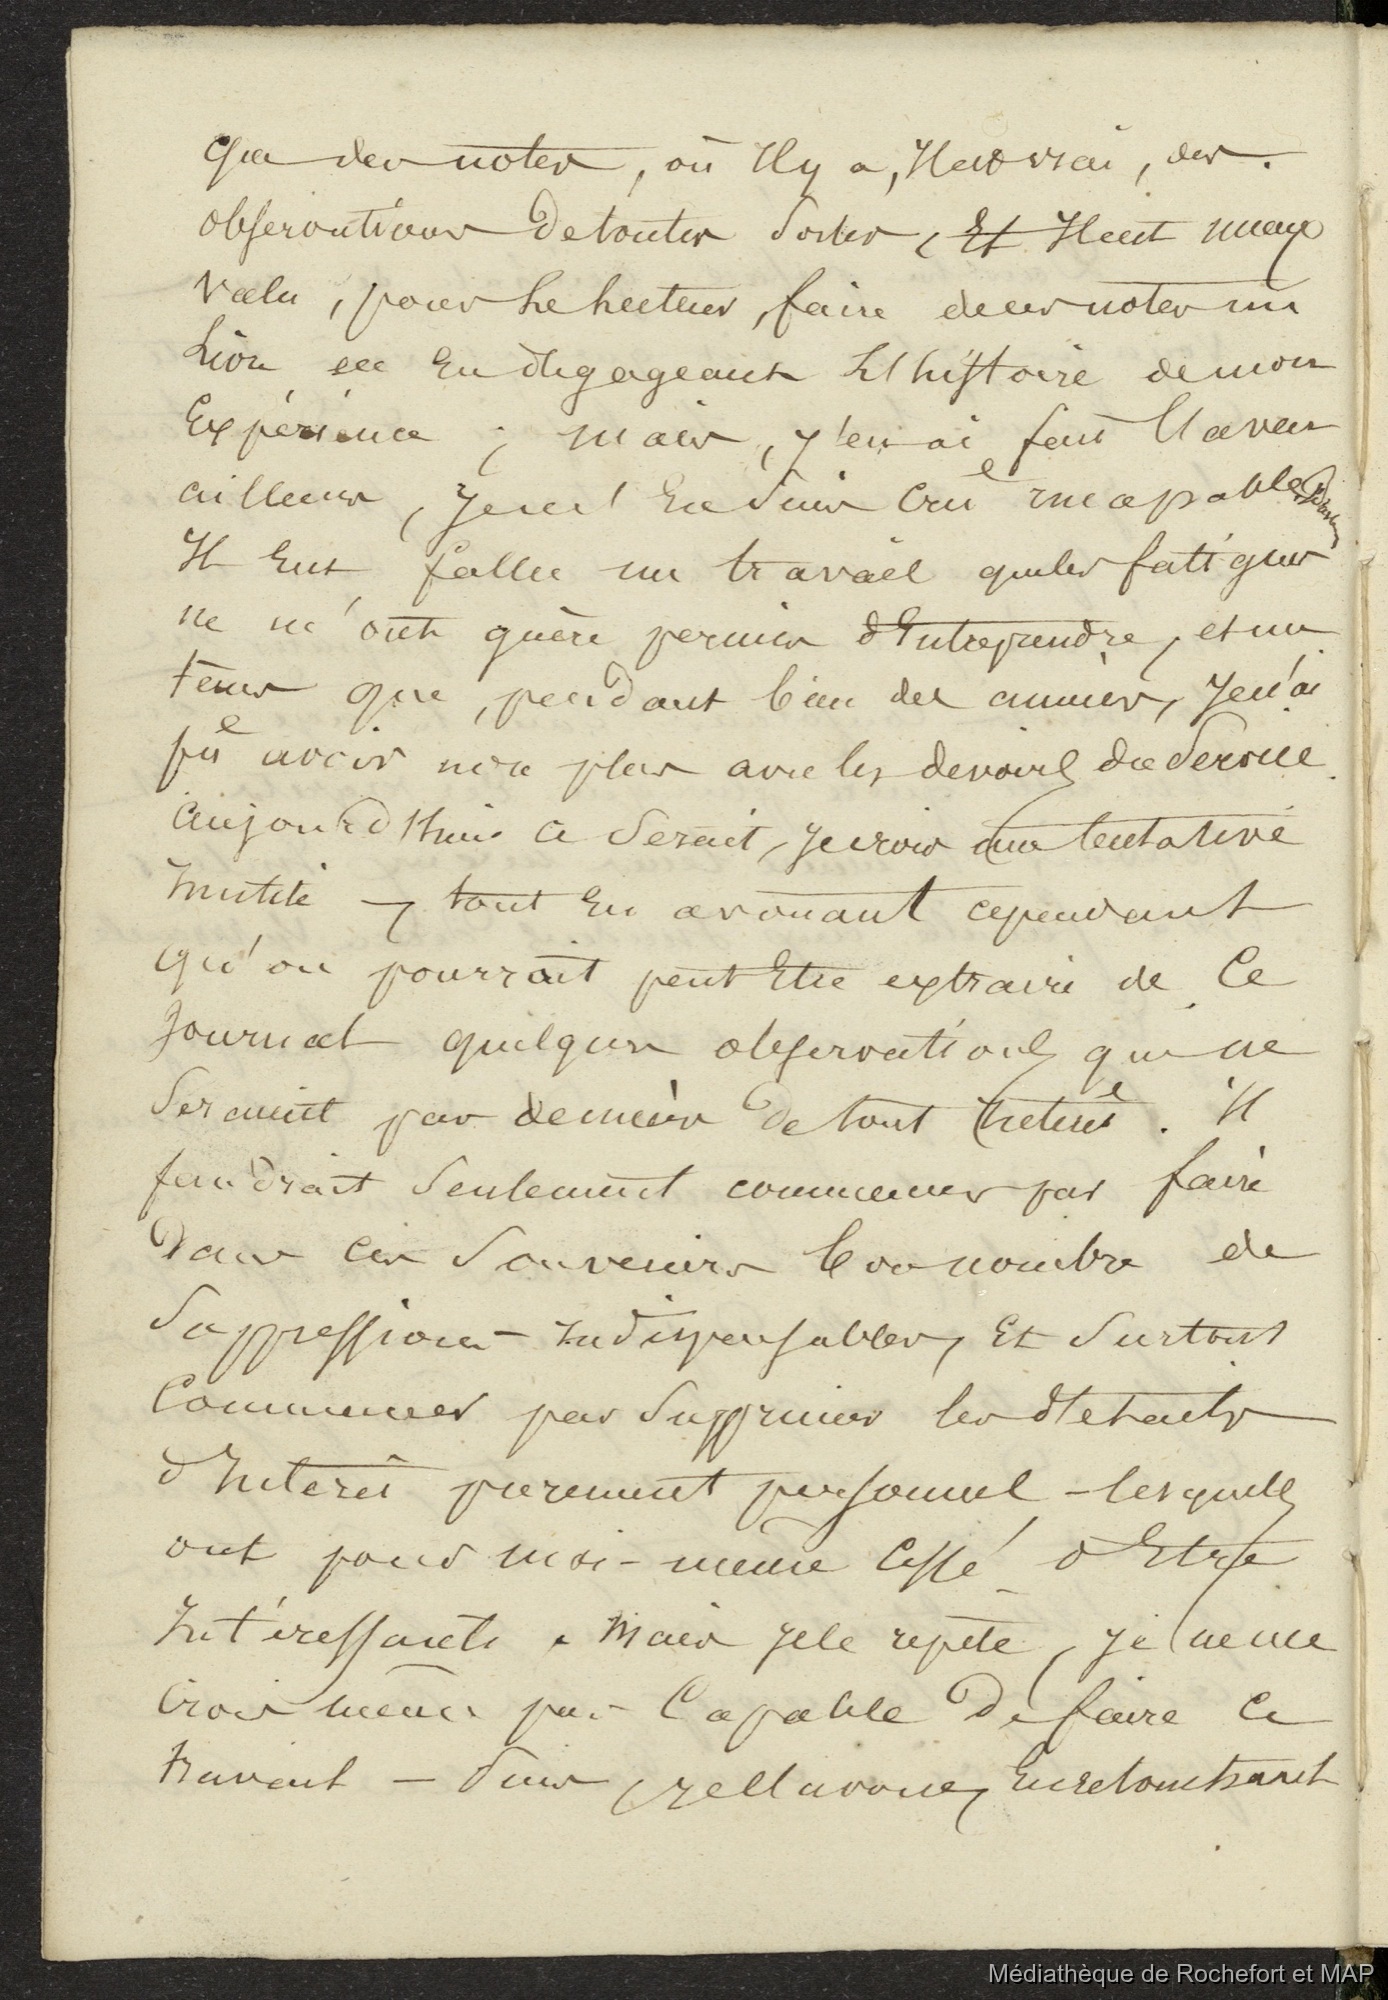 que des notes, où Il y a, Il est vrai, des
observations de toutes sortes, Et Il eut mieux
valu, pour le lecteur, faire de ces notes un
livre en dégageant l'histoire de mon
Expérience ; mais, j'en ai fait l'aveu
ailleurs, je m'en suis crû incapable.
Il eut fallu un travail que les fatigues
ne m'ont guère permis d'Entreprendre, et un
tems que, pendant bien des années, je n'ai
pû avoir non plus avec les devoirs du service.
aujourd'hui ce serait, je crois une tentative
Inutile — tout En avouant cependant
qu'on pourrait peut Etre extraire de Ce
Journal quelques observations qui ne
seraient pas dénuées de tout intérêt. Il
faudrait seulement commencer par faire
dans ces souvenirs bon nombre de
suppressions Indispensables, Et surtout
Commencer par supprimer les détails
d'Intérêt purement personnel - lesquels
ont pour moi-même cessé d'Etre
Intéressants. Mais je le répète, je ne me
crois même pas Capable de faire ce
travail — suis, je l'avoue, En retombant
Médiathèque de Rochefort et MAP